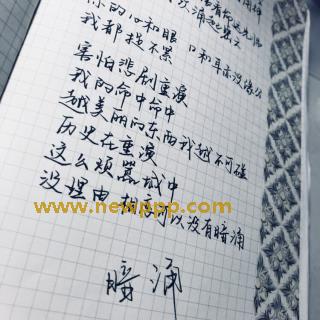 你的心和眼 口和耳亦没缘份
我都捉不紧
害怕悲剧重演
我的命中命中
越美丽的东西我越不可碰
历史在重演
这么烦嚣城中
没理由 相恋可以没有暗涌
www.newppp.com
暗涌